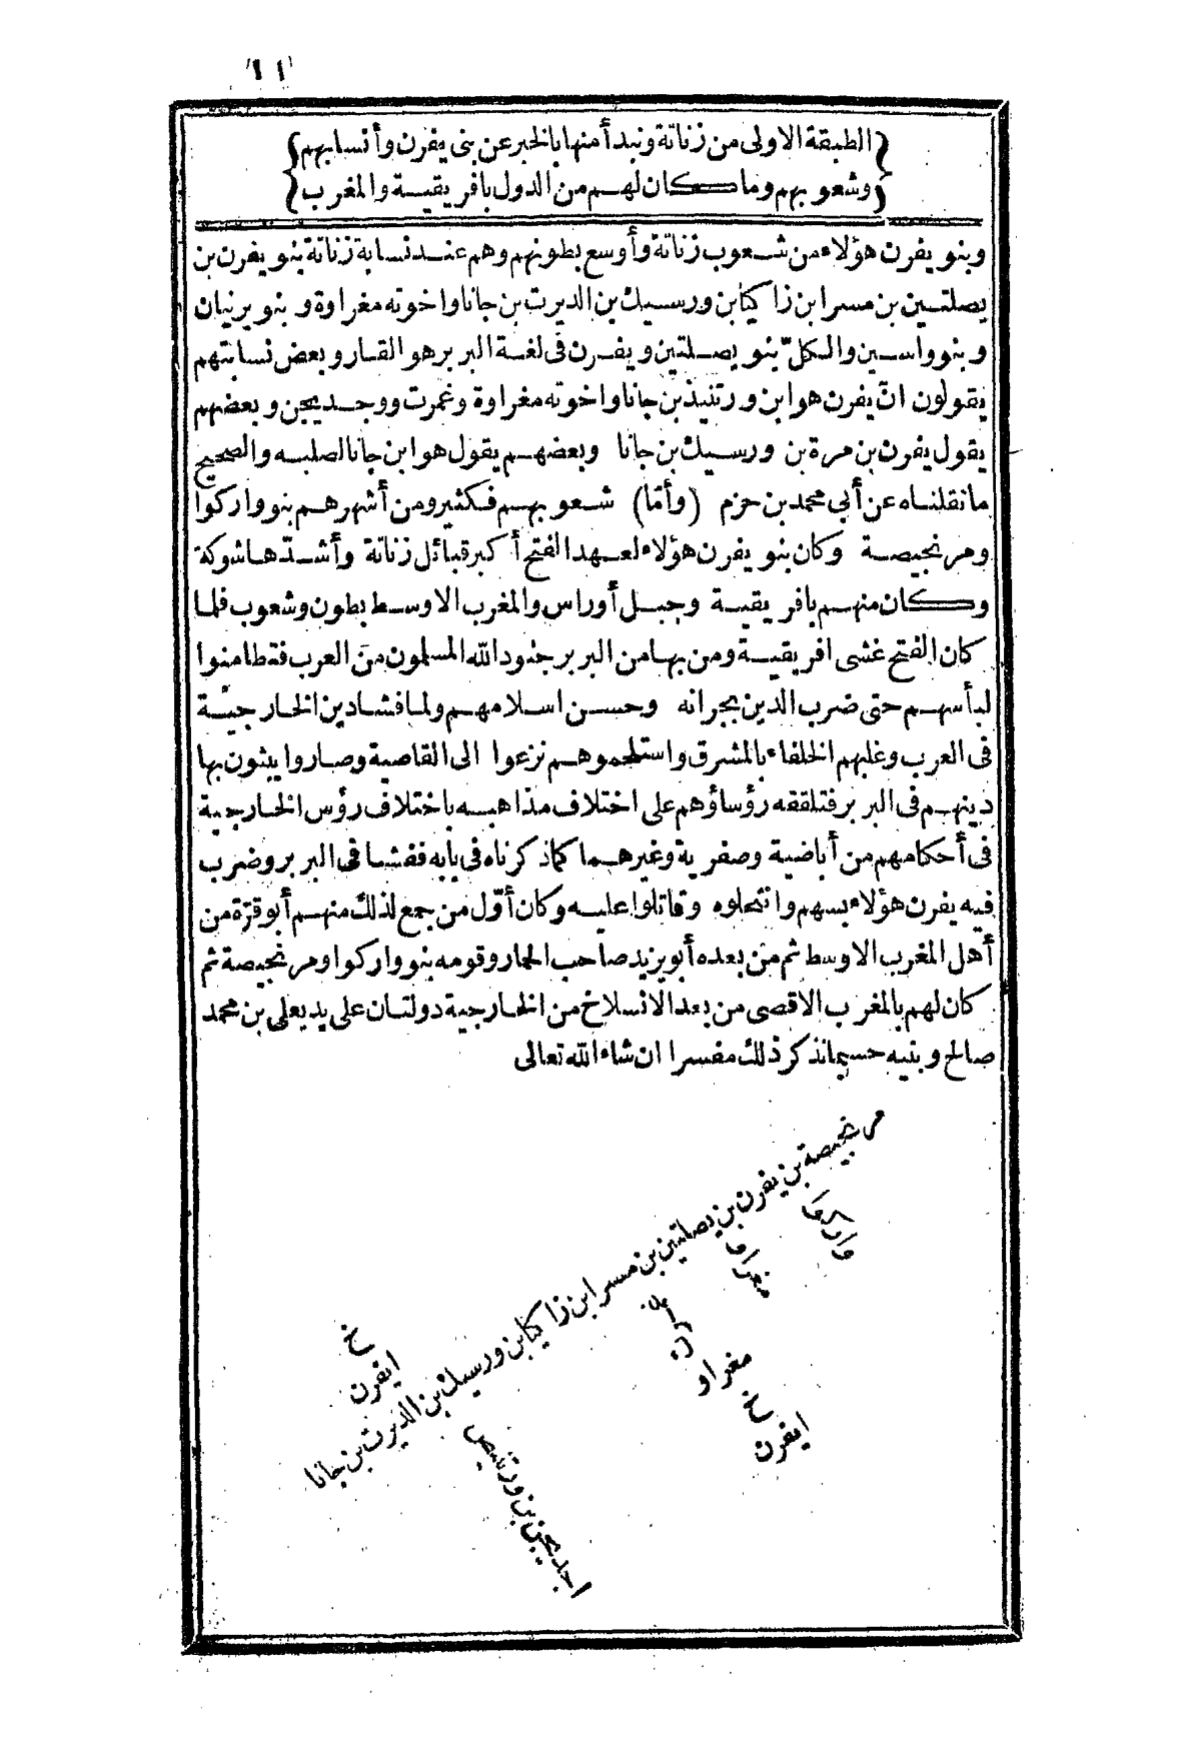 ١١
{الطبقة الاولى من زناتة ونبدأ منها بالخبر عن بنى يفرن وأنسابهم}
{وشعوبهم وما كان لهم من الدول بافريقية والمغرب}
وبنو يفرن هؤلاء من شعوب زناتة وأوسع بطونهم وهم عند نسابة زناتة بنو يفرن بن
يصلتين بن مسرا بن زاكيا بن ورسيك بن الديرت بن جانا واخوته مغراوة وبنو يرنيان
وبنو واسين والكلّ بنو يصلتين ويفرن فى لغة البربر هو القار وبعض نسابتهم
يقولون انّ يفرن هو ابن ورتنيذ بن جانا واخوته مغراوة وغمرت ووجديجن وبعضهم
يقول يفرن بن مرة بن ورسيك بن جانا وبعضهم يقول هو ابن جانا لصلبه والصحيح
ما نقلناه عن أبى محمد بن حزم (وأمّا) شعوبهم فكثير ومن أشهرهم بنو واركوا
ومرنجيصة وكان بنو يفرن هؤلاء لعهد الفتح أكبر قبائل زناتة وأشدّها شوكة
وكان منهم بافريقية وجبل أوراس والمغرب الاوسط بطون وشعوب فلما
كان الفتح غشى افريقية ومن بها من البربر جنود الله المسلمون من العرب فتطامنوا
لبأسهم حتى ضرب الدين بجرانه وحسن اسلامهم ولما فشا دين الخارجيّة
فى العرب وغلبهم الخلفاء بالمشرق واستلحموهم نزعوا الى القاصية وصاروا يبثون بها
دينهم فى البربر فتلقفه رؤساؤهم على اختلاف مذاهبه باختلاف رؤس الخارجية
فى أحكامهم من أباضية وصفرية وغيرهما كما ذكرناه فى بابه ففشا فى البربر وضرب
فيه يفرن هؤلاء بسهم وانتحلوه وقاتلوا عليه وكان أوّل من جمع لذلك منهم أبو قرّة من
أهل المغرب الاوسط ثم من بعده أبو يزيد صاحب الحمار وقومه بنو واركوا ومرنجيصة ثم
كان لهم بالمغرب الاقصى من بعد الانسلاخ من الخارجية دولتان على يد يعلى بن محمد
صالح وبنيه حسبما نذكر ذلك مفسرا ان شاء الله تعالى
مرنجيصة بن يفرن بن يصلتين بن مسرا بن زاكيا بن ورسيك بن الديرت بن جانا
واركوا
مغراو
مغراو
خ
ايفرن
خ
ايفرن
اجديجن بن ورتنيص